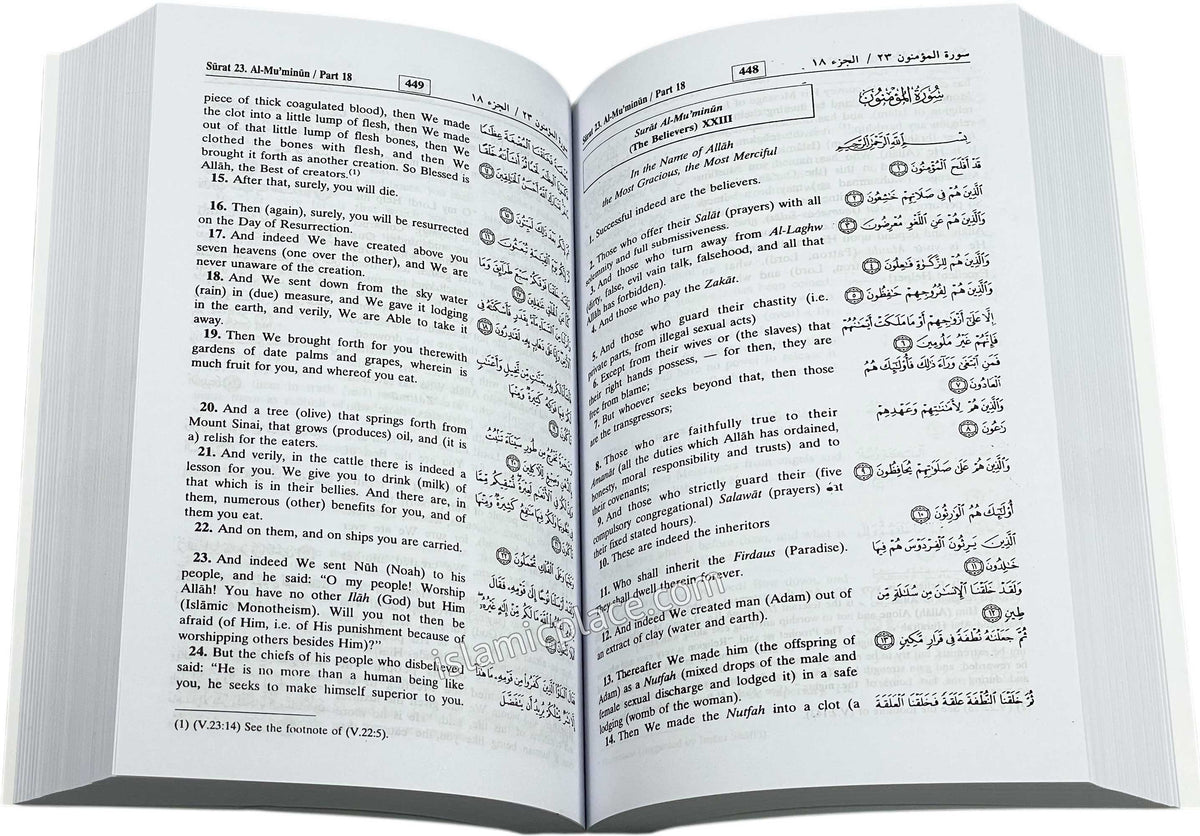 Sûrat 23. Al-Mu'minûn / Part 18
448
سورة المؤمنون ٢٣ / الجزء ١٨
Sûrât Al-Mu'minûn
(The Believers) XXIII
In the Name of Allâh
the Most Gracious, the Most Merciful
1. Successful indeed are the believers.
2. Those who offer their Salât (prayers) with all
solemnity and full submissiveness.
3. And those who turn away from Al-Laghw
(dirty, false, evil vain talk, falsehood, and all that
Allâh has forbidden).
4. And those who pay the Zakât.
5. And those who guard their chastity (i.e.
private parts, from illegal sexual acts)
6. Except from their wives or (the slaves) that
their right hands possess, — for then, they are
free from blame;
7. But whoever seeks beyond that, then those
are the transgressors;
8. Those who are faithfully true to their
Amanât (all the duties which Allâh has ordained,
honesty, moral responsibility and trusts) and to
their covenants;
9. And those who strictly guard their (five
compulsory congregational) Salawât (prayers) at
their fixed stated hours).
10. These are indeed the inheritors
11. Who shall inherit the Firdaus (Paradise).
they shall dwell therein forever.
12. And indeed We created man (Adam) out of
an extract of clay (water and earth).
13. Thereafter We made him (the offspring of
Adam) as a Nutfah (mixed drops of the male and
female sexual discharge and lodged it) in a safe
lodging (womb of the woman).
14. Then We made the Nutfah into a clot (a
سُورَةُ المُؤْمِنُونَ
بِسْمِ اللَّهِ الرَّحْمَٰنِ الرَّحِيمِ
قَدْ أَفْلَحَ الْمُؤْمِنُونَ ١
الَّذِينَ هُمْ فِي صَلَاتِهِمْ خَاشِعُونَ ٢
وَالَّذِينَ هُمْ عَنِ اللَّغْوِ مُعْرِضُونَ ٣
وَالَّذِينَ هُمْ لِلزَّكَاةِ فَاعِلُونَ ٤
وَالَّذِينَ هُمْ لِفُرُوجِهِمْ حَافِظُونَ ٥
إِلَّا عَلَىٰ أَزْوَاجِهِمْ أَوْ مَا مَلَكَتْ أَيْمَانُهُمْ
فَإِنَّهُمْ غَيْرُ مَلُومِينَ ٦
فَمَنِ ابْتَغَىٰ وَرَاءَ ذَٰلِكَ فَأُولَٰئِكَ هُمُ
الْعَادُونَ ٧
وَالَّذِينَ هُمْ لِأَمَانَاتِهِمْ وَعَهْدِهِمْ
رَاعُونَ ٨
وَالَّذِينَ هُمْ عَلَىٰ صَلَوَاتِهِمْ يُحَافِظُونَ ٩
أُولَٰئِكَ هُمُ الْوَارِثُونَ ١٠
الَّذِينَ يَرِثُونَ الْفِرْدَوْسَ هُمْ فِيهَا
خَالِدُونَ ١١
وَلَقَدْ خَلَقْنَا الْإِنسَانَ مِن سُلَالَةٍ مِّن
طِينٍ ١٢
ثُمَّ جَعَلْنَاهُ نُطْفَةً فِي قَرَارٍ مَّكِينٍ ١٣
ثُمَّ خَلَقْنَا النُّطْفَةَ عَلَقَةً فَخَلَقْنَا الْعَلَقَةَ
Sûrat 23. Al-Mu'minûn / Part 18
449
سورة المؤمنون ٢٣ / الجزء ١٨
piece of thick coagulated blood), then We made
the clot into a little lump of flesh, then We made
out of that little lump of flesh bones, then We
clothed the bones with flesh, and then We
brought it forth as another creation. So Blessed is
Allâh, the Best of creators.(1)
15. After that, surely, you will die.
16. Then (again), surely, you will be resurrected
on the Day of Resurrection.
17. And indeed We have created above you
seven heavens (one over the other), and We are
never unaware of the creation.
18. And We sent down from the sky water
(rain) in (due) measure, and We gave it lodging
in the earth, and verily, We are Able to take it
away.
19. Then We brought forth for you therewith
gardens of date palms and grapes, wherein is
much fruit for you, and whereof you eat.
20. And a tree (olive) that springs forth from
Mount Sinai, that grows (produces) oil, and (it is
a) relish for the eaters.
21. And verily, in the cattle there is indeed a
lesson for you. We give you to drink (milk) of
that which is in their bellies. And there are, in
them, numerous (other) benefits for you, and of
them you eat.
22. And on them, and on ships you are carried.
23. And indeed We sent Nûh (Noah) to his
people, and he said: “O my people! Worship
Allâh! You have no other Ilâh (God) but Him
(Islâmic Monotheism). Will you not then be
afraid (of Him, i.e. of His punishment because of
worshipping others besides Him)?”
24. But the chiefs of his people who disbelieved
said: “He is no more than a human being like
you, he seeks to make himself superior to you.
(1) (V.23:14) See the footnote of (V.22:5).
islamicplace.com